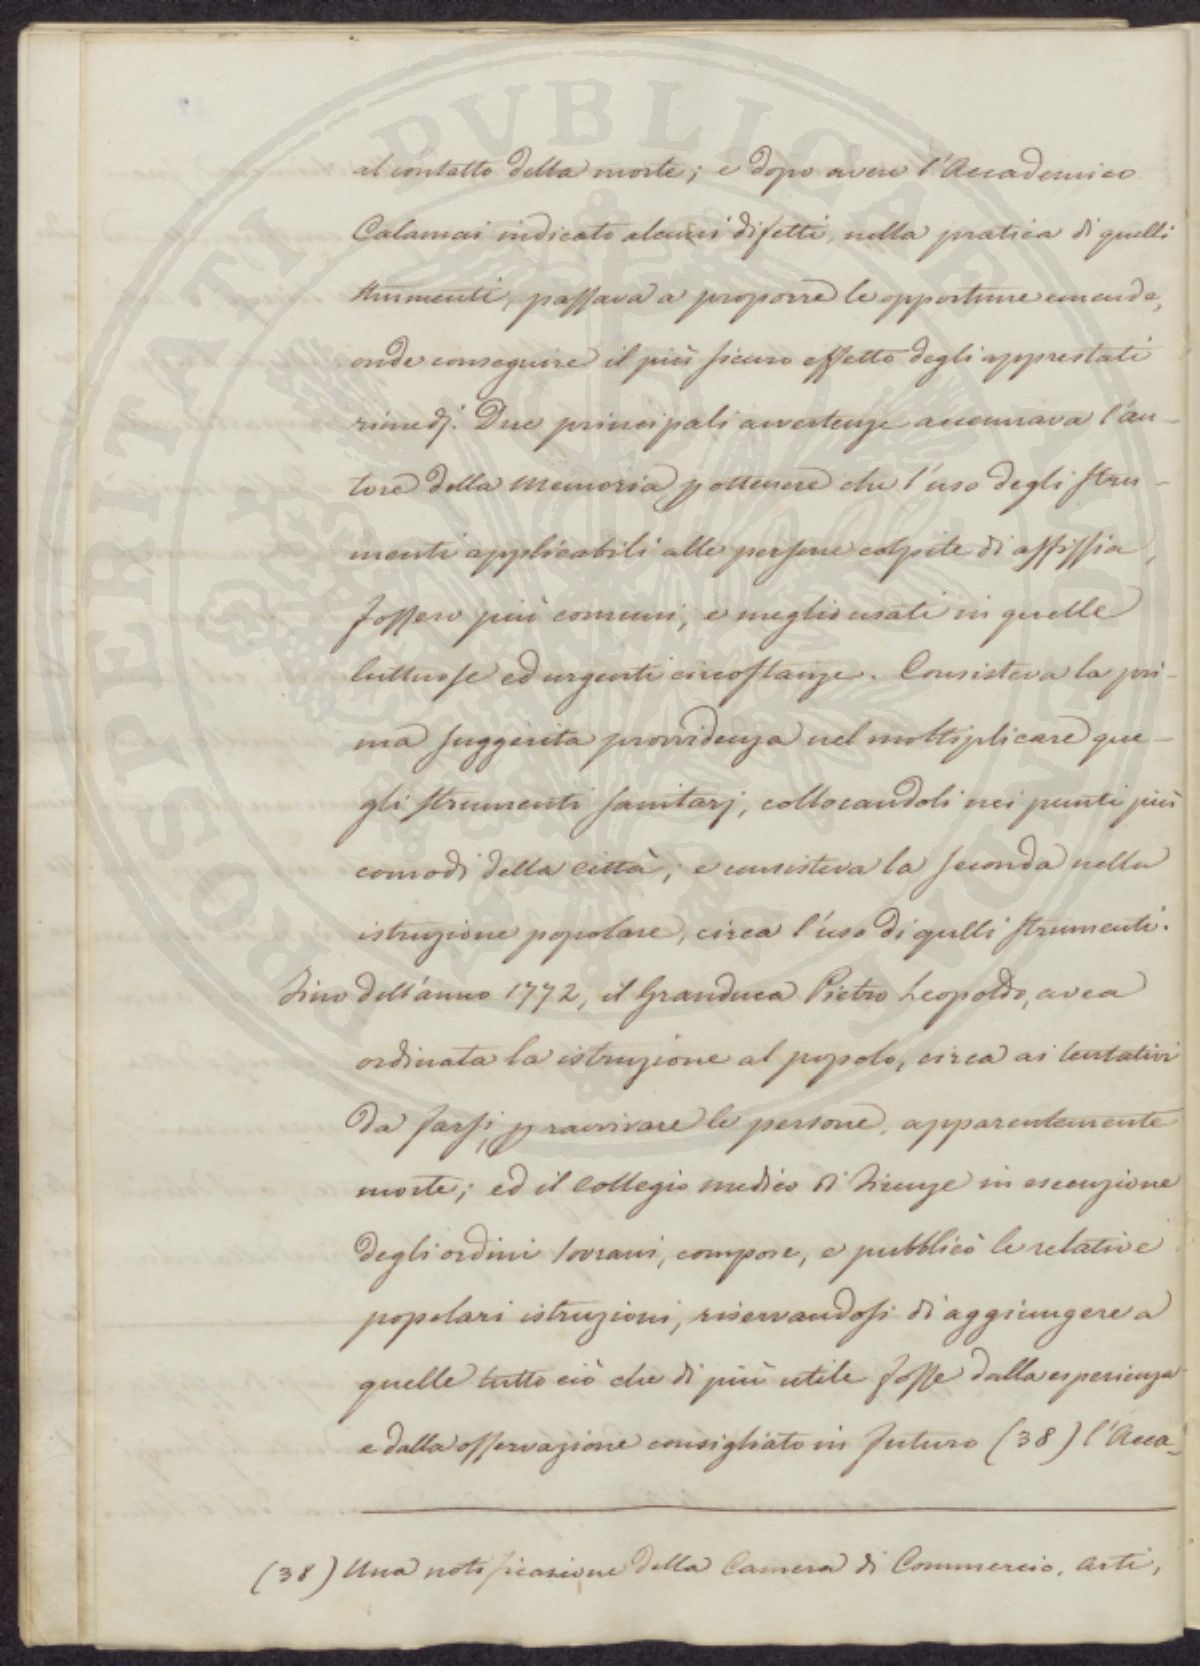 al contatto della morte; e dopo avere l'Accademico
Calamai indicato alcuni difetti, nella pratica di quelli
strumenti, passava a proporre le opportune emende,
onde conseguire il più sicuro effetto degli apprestati
rimedj. Due principali avvertenze accennava l'au-
tore della Memoria p ottenere che l'uso degli stru-
menti applicabili alle persone colpite di assissia,
fossero più comuni, e meglio usati in quelle
luttuose ed urgenti circostanze. Consisteva la pri-
ma suggerita provvidenza nel moltiplicare que-
gli strumenti sanitarj, collocandoli nei punti più
comodi della città; e consisteva la seconda nella
istruzione popolare, circa l'uso di qulli strumenti.
Fino dell'anno 1772, il Granduca Pietro Leopoldo, avea
ordinata la istruzione al popolo, circa ai tentativi
da farsi, p ravvivare le persone, apparentemente
morte; ed il Collegio medico di Firenze in esecuzione
degli ordini sovrani, compose, e pubblicò le relative
popolari istruzioni, riservandosi di aggiungere a
quelle tutto ciò che di più utile fosse dalla esperienza
e dalla osservazione consigliato in futuro (38) l'Acca-
(38) Una notificazione della Camera di Commercio, Arti,
PROSPERITATI PUBLICAE